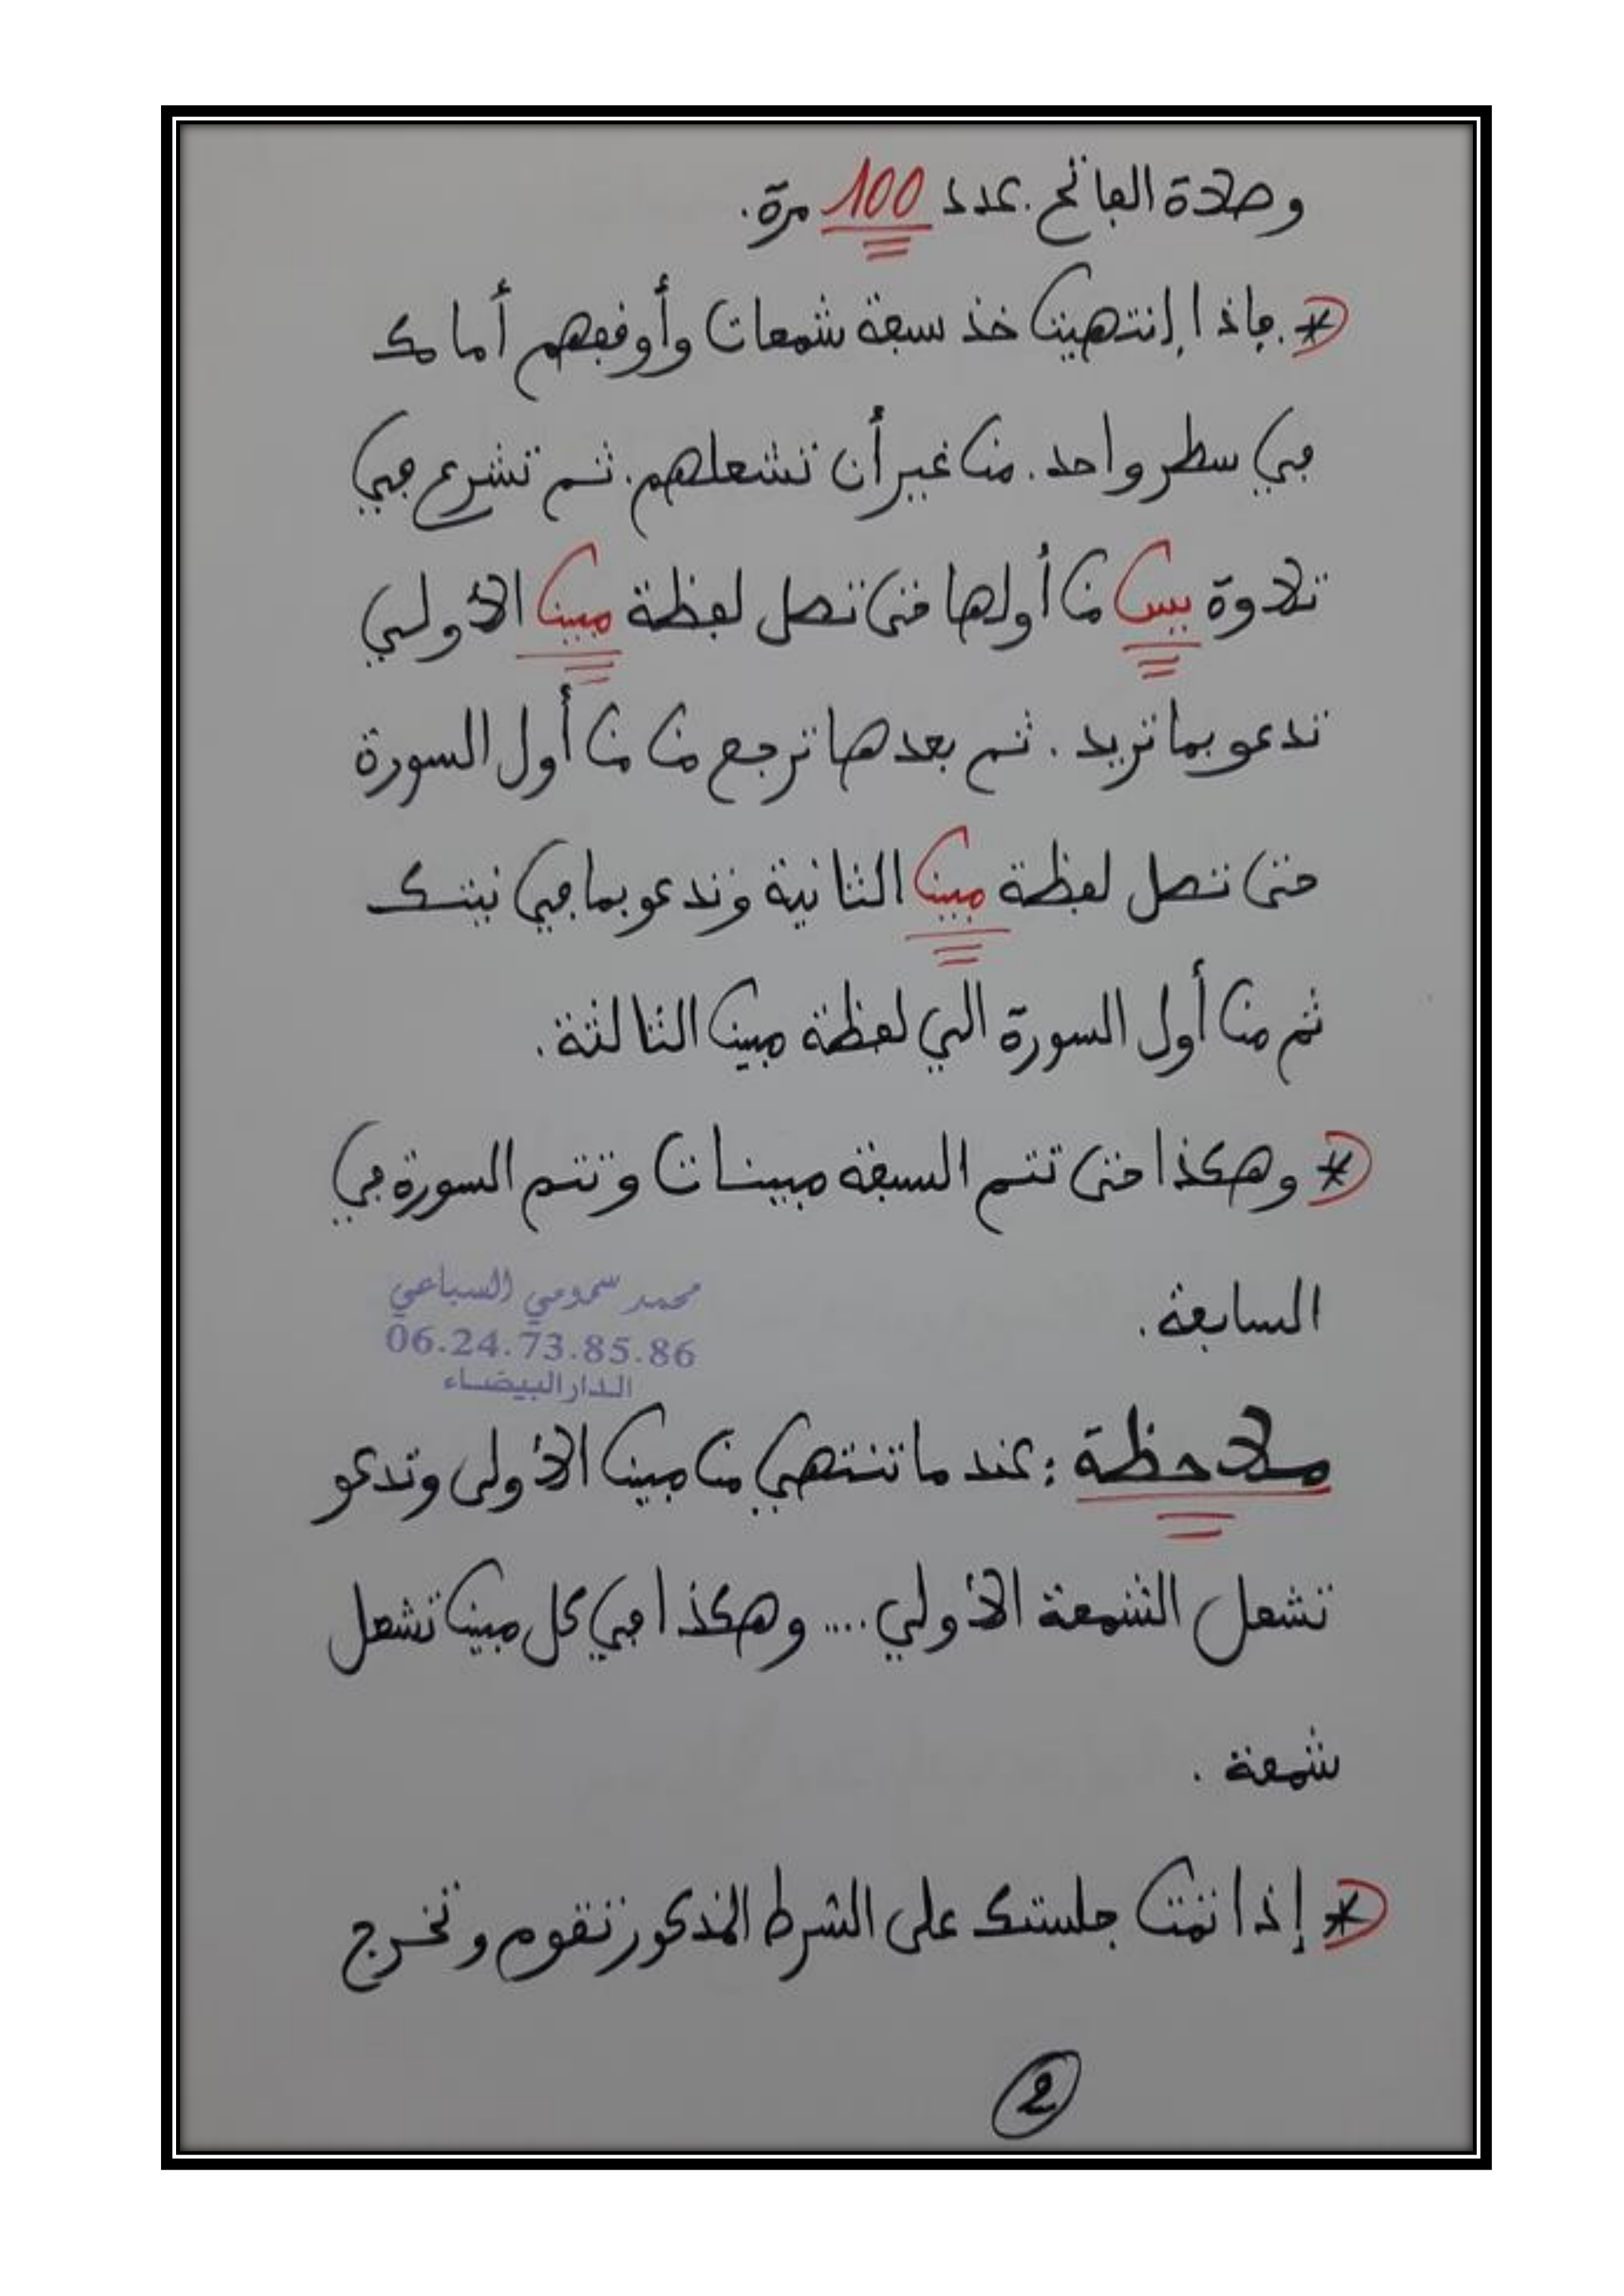 وصلاة الفاتح. عدد 100 مرة.
* فإذا إنتهيت خذ سبعة شمعات وأوقفهم أمامك
في سطر واحد. من غير أن تشعلهم. ثم تشرع في
تلاوة يس من أولها حتى تصل لفظة مبين الأولي
تدعو بما تريد. ثم بعدها ترجع من من أول السورة
حتى تصل لفظة مبين الثانية وتدعو بما في نيتك
ثم من أول السورة الي لفظة مبين الثالثة.
* وهكذا حتى تتم السبعة مبينات وتتم السورة في
السابعة.
محمد سمومي السباعي
06.24.73.85.86
الدار البيضاء
ملاحظة: عند ما تنتهي من مبين الأولى وتدعو
تشعل الشمعة الأولي .... وهكذا في كل مبين تشعل
شمعة.
* إذا تمت جلستك على الشرط المذكور تقوم وتخرج
2